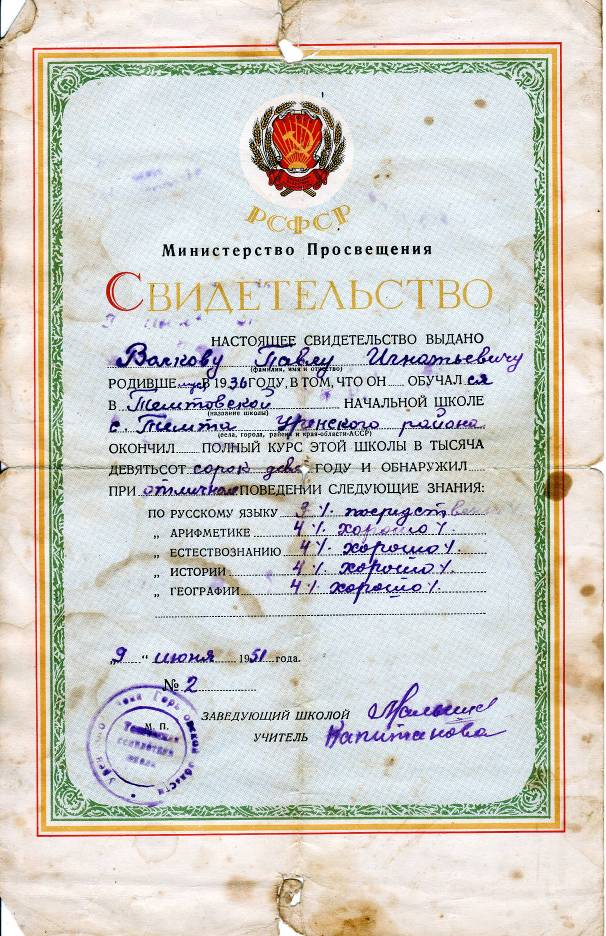 РСФСР
Министерство Просвещения
СВИДЕТЕЛЬСТВО
НАСТОЯЩЕЕ СВИДЕТЕЛЬСТВО ВЫДАНО
Волкову Павлу Игнатьевичу
(фамилия, имя и отчество)
РОДИВШЕМУСЯ В 1936 ГОДУ, В ТОМ, ЧТО ОН ОБУЧАЛСЯ
В Темтовской НАЧАЛЬНОЙ ШКОЛЕ
(название школы)
с. Темта Уренского района
(села, города, района и края-области-АССР)
ОКОНЧИЛ ПОЛНЫЙ КУРС ЭТОЙ ШКОЛЫ В ТЫСЯЧА
ДЕВЯТЬСОТ сорок ГОДУ И ОБНАРУЖИЛ
ПРИ отличном ПОВЕДЕНИИ СЛЕДУЮЩИЕ ЗНАНИЯ:
ПО РУССКОМУ ЯЗЫКУ 3 /.
„ АРИФМЕТИКЕ 4 /. хорошо /.
„ ЕСТЕСТВОЗНАНИЮ 4 /. хорошо /.
„ ИСТОРИИ 4 /. хорошо /.
„ ГЕОГРАФИИ 4 /. хорошо /.
„9" июня 1951 года.
№ 2
ЗАВЕДУЮЩИЙ ШКОЛОЙ
УЧИТЕЛЬ Капитанова
М. П.